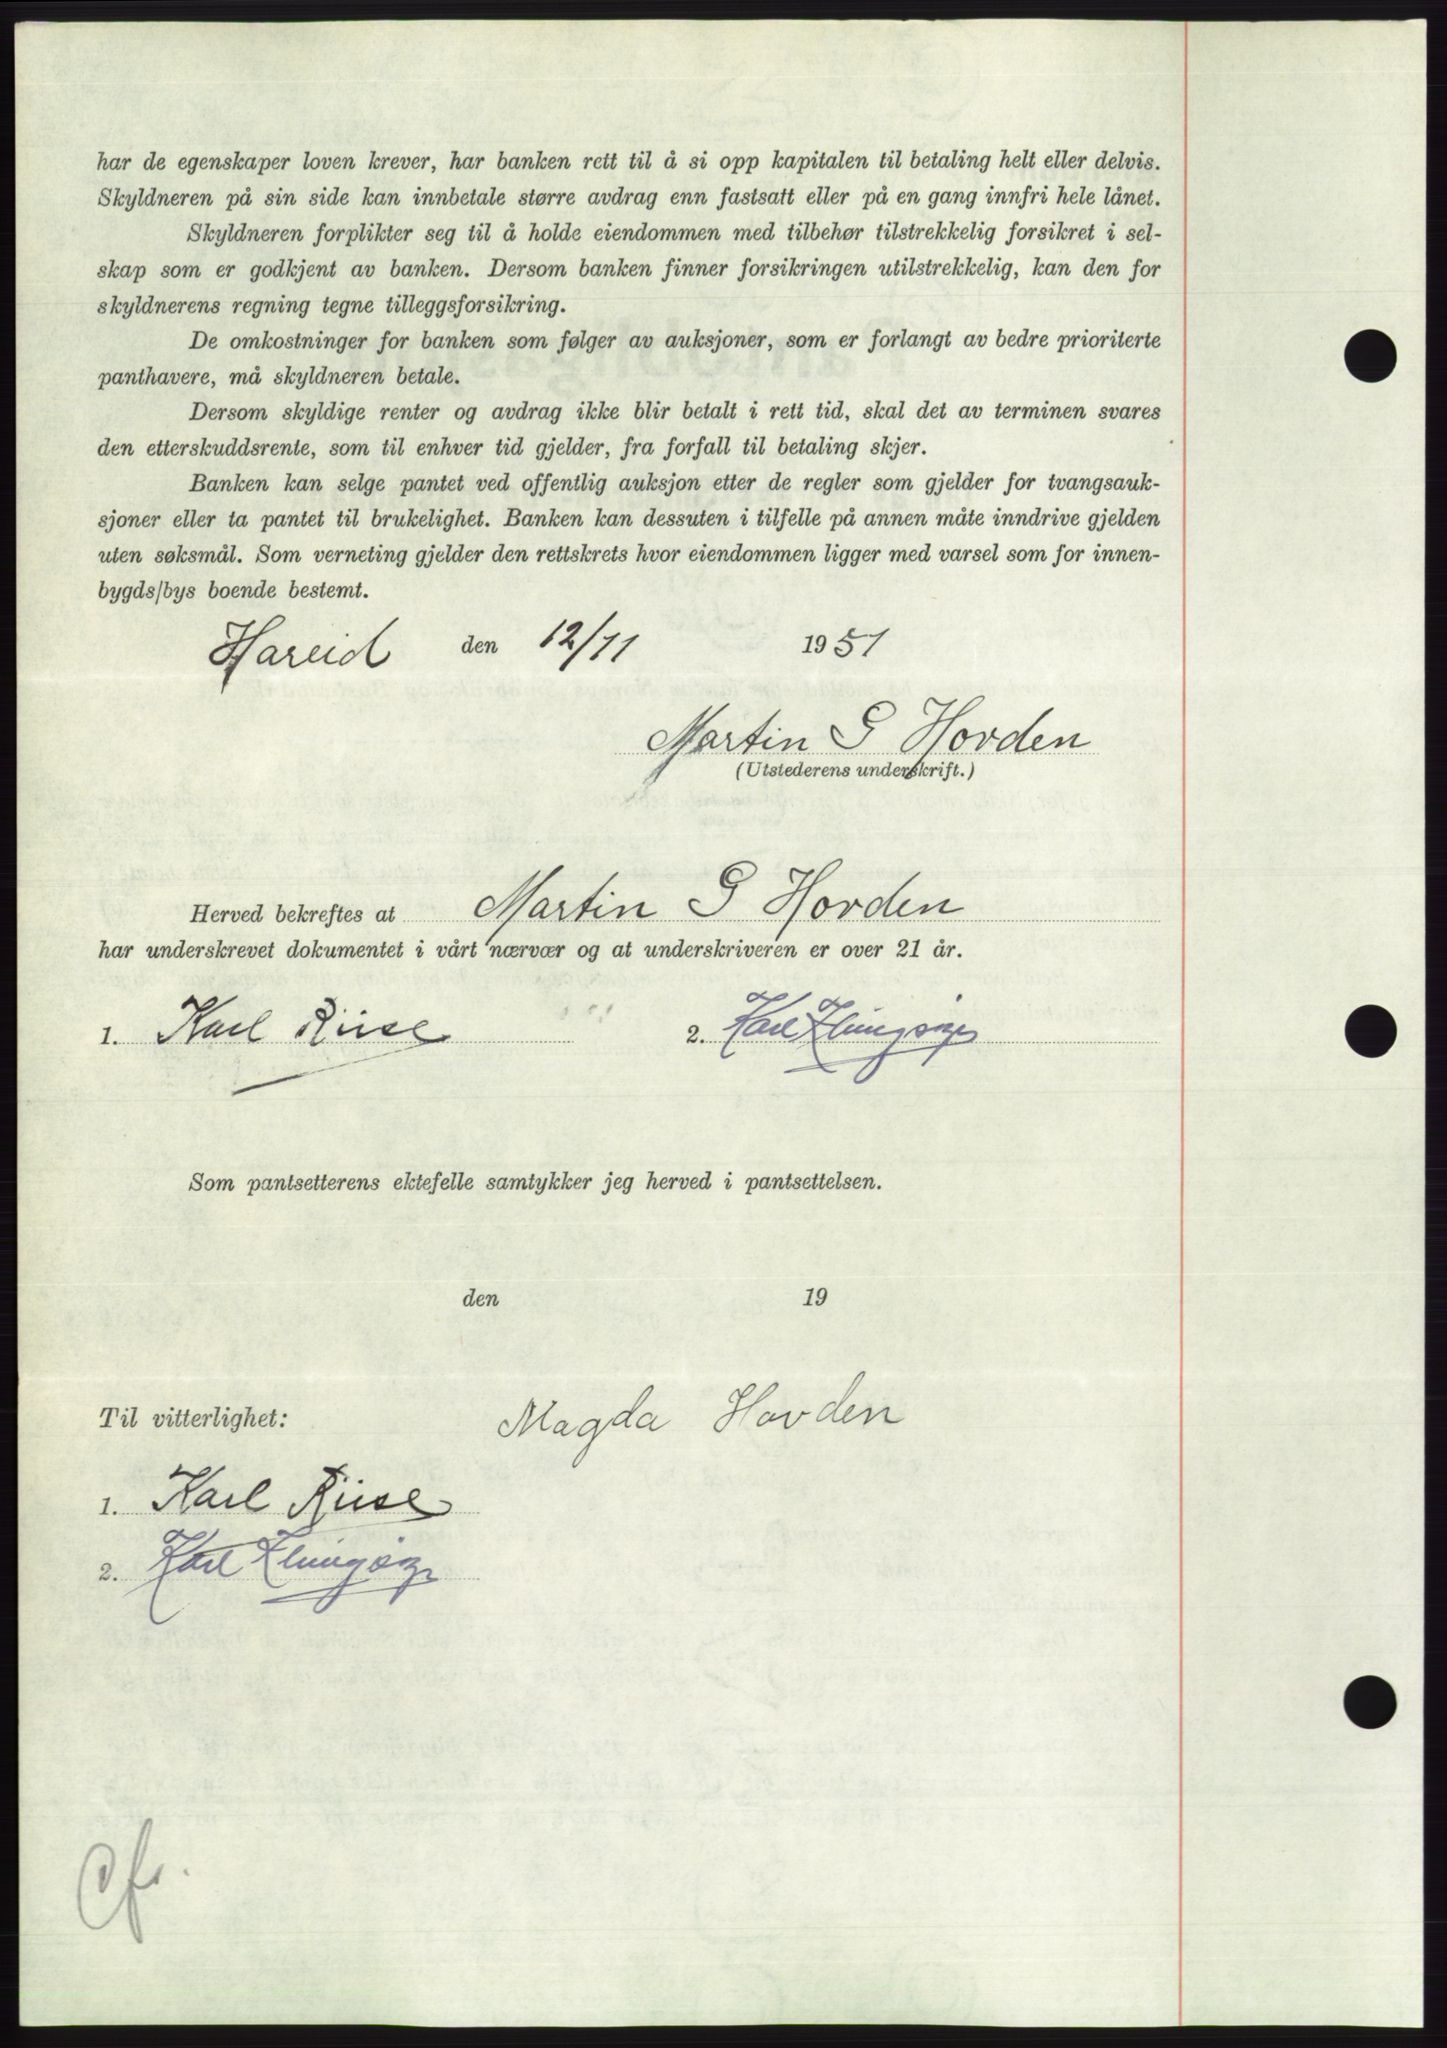 har de egenskaper loven krever, har banken rett til å si opp kapitalen til betaling helt eller delvis.
Skyldneren på sin side kan innbetale større avdrag enn fastsatt eller på en gang innfri hele lånet.
Skyldneren forplikter seg til å holde eiendommen med tilbehør tilstrekkelig forsikret i sel-
skap som er godkjent av banken. Dersom banken finner forsikringen utilstrekkelig, kan den for
skyldnerens regning tegne tilleggsforsikring.
De omkostninger for banken som følger av auksjoner, som er forlangt av bedre prioriterte
panthavere, må skyldneren betale.
Dersom skyldige renter og avdrag ikke blir betalt i rett tid, skal det av terminen svares
den etterskuddsrente, som til enhver tid gjelder, fra forfall til betaling skjer.
Banken kan selge pantet ved offentlig auksjon etter de regler som gjelder for tvangsauk-
sjoner eller ta pantet til brukelighet. Banken kan dessuten i tilfelle på annen måte inndrive gjelden
uten søksmål. Som verneting gjelder den rettskrets hvor eiendommen ligger med varsel som for innen-
bygds/bys boende bestemt.
Hareid den 12/11 1951
Martin G Hovden
(Utstederens underskrift.)
Herved bekreftes at Martin G Hovden
har underskrevet dokumentet i vårt nærvær og at underskriveren er over 21 år.
1. Karl Riise 2. Karl
Som pantsetterens ektefelle samtykker jeg herved i pantsettelsen.
den 19
Til vitterlighet: Magda Hovden
1. Karl Riise
2. Karl